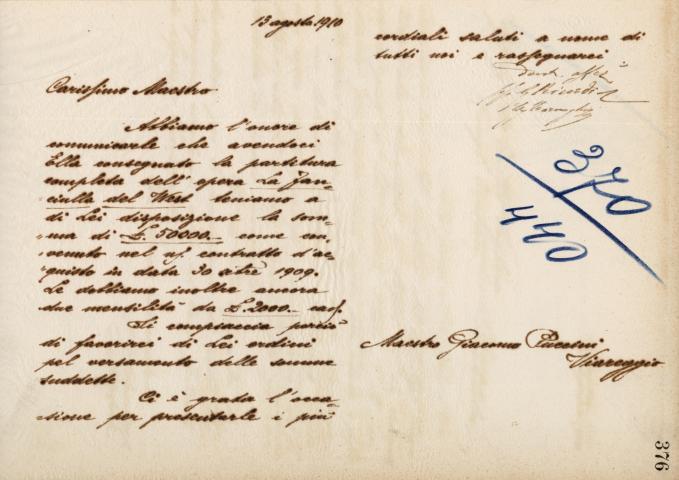 13 agosto 1910
Carissimo Maestro
Abbiamo l'onore di
comunicarle che avendoci
Ella consegnato la partitura
completa dell'opera La Fan-
ciulla del West teniamo a
di Lei disposizione la som-
ma di £. 50000.- come con-
venuto nel ns/ contratto d'ac-
quisto in data 30 sbre 1909.
Le dobbiamo inoltre ancora
due mensilità da £. 2000.-
Si compiaccia perciò
di favorirci di Lei ordini
pel versamento delle somme
suddette.
Ci è grata l'occa-
sione per presentarle i più
cordiali saluti a nome di
tutti noi e rassegnarci
G. Ricordi
370
440
Maestro Giacomo Puccini
Viareggio
376